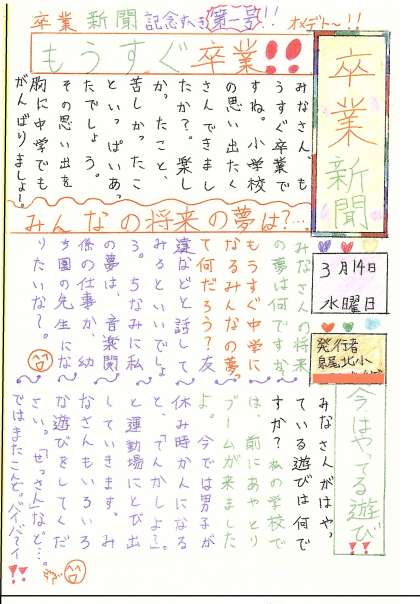 卒業新聞記念すべき第一号!! オメデト～!!
卒業新聞
3月14日
水曜日
発行者
もうすぐ卒業!!
みなさん、も
うすぐ卒業で
すね。小学校
の思い出たく
さんできまし
たか?。楽し
かったこと、
苦しかったこ
といっぱいあっ
たでしょう。
その思い出を
胸に中学でも
がんばりましょー。
みんなの将来の夢は?…
みなさんの将来
の夢は何ですか。
もうすぐ中学に
なるみんなの夢っ
て何だろう?友
達などと話して
みるといいでしょ
う。ちなみに私
の夢は、音楽関
係の仕事か、幼
ち園の先生にな
りたいな?。
今はやってる遊び!!
みなさんがはやっ
ている遊びは何で
すか?私の学校で
は、前にあやとり
ブームが来ました
よ。今では男子が
休み時か人になる
と、「でんかしよ〜」。
と運動場にとび出
していきます。み
なさんもいろいろ
な遊びをしてくだ
さい。「せっさん」など…。
ではまたこんど。バイバイ!!